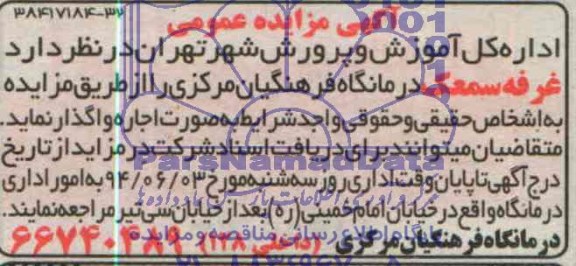 ۳۸۴۱۷۱۸۴-۳۲
آگهی مزایده عمومی
اداره کل آموزش و پرورش شهر تهران در نظر دارد
غرفه سمعک درمانگاه فرهنگیان مرکزی را از طریق مزایده
به اشخاص حقیقی و حقوقی واجد شرایط به صورت اجاره واگذار نماید.
متقاضیان میتوانند برای دریافت اسناد شرکت در مزاید از تاریخ
درج آگهی تا پایان وقت اداری روز سه شنبه مورخ ۹۴/۰۶/۰۳ به امور اداری
درمانگاه واقع در خیابان امام خمینی(ره) بعد از خیابان سی تیر مراجعه نمایند.
درمانگاه فرهنگیان مرکزی (داخلی ۱۲۸)
ParsNamadData
پایگاه اطلاع رسانی مناقصه و مزایده